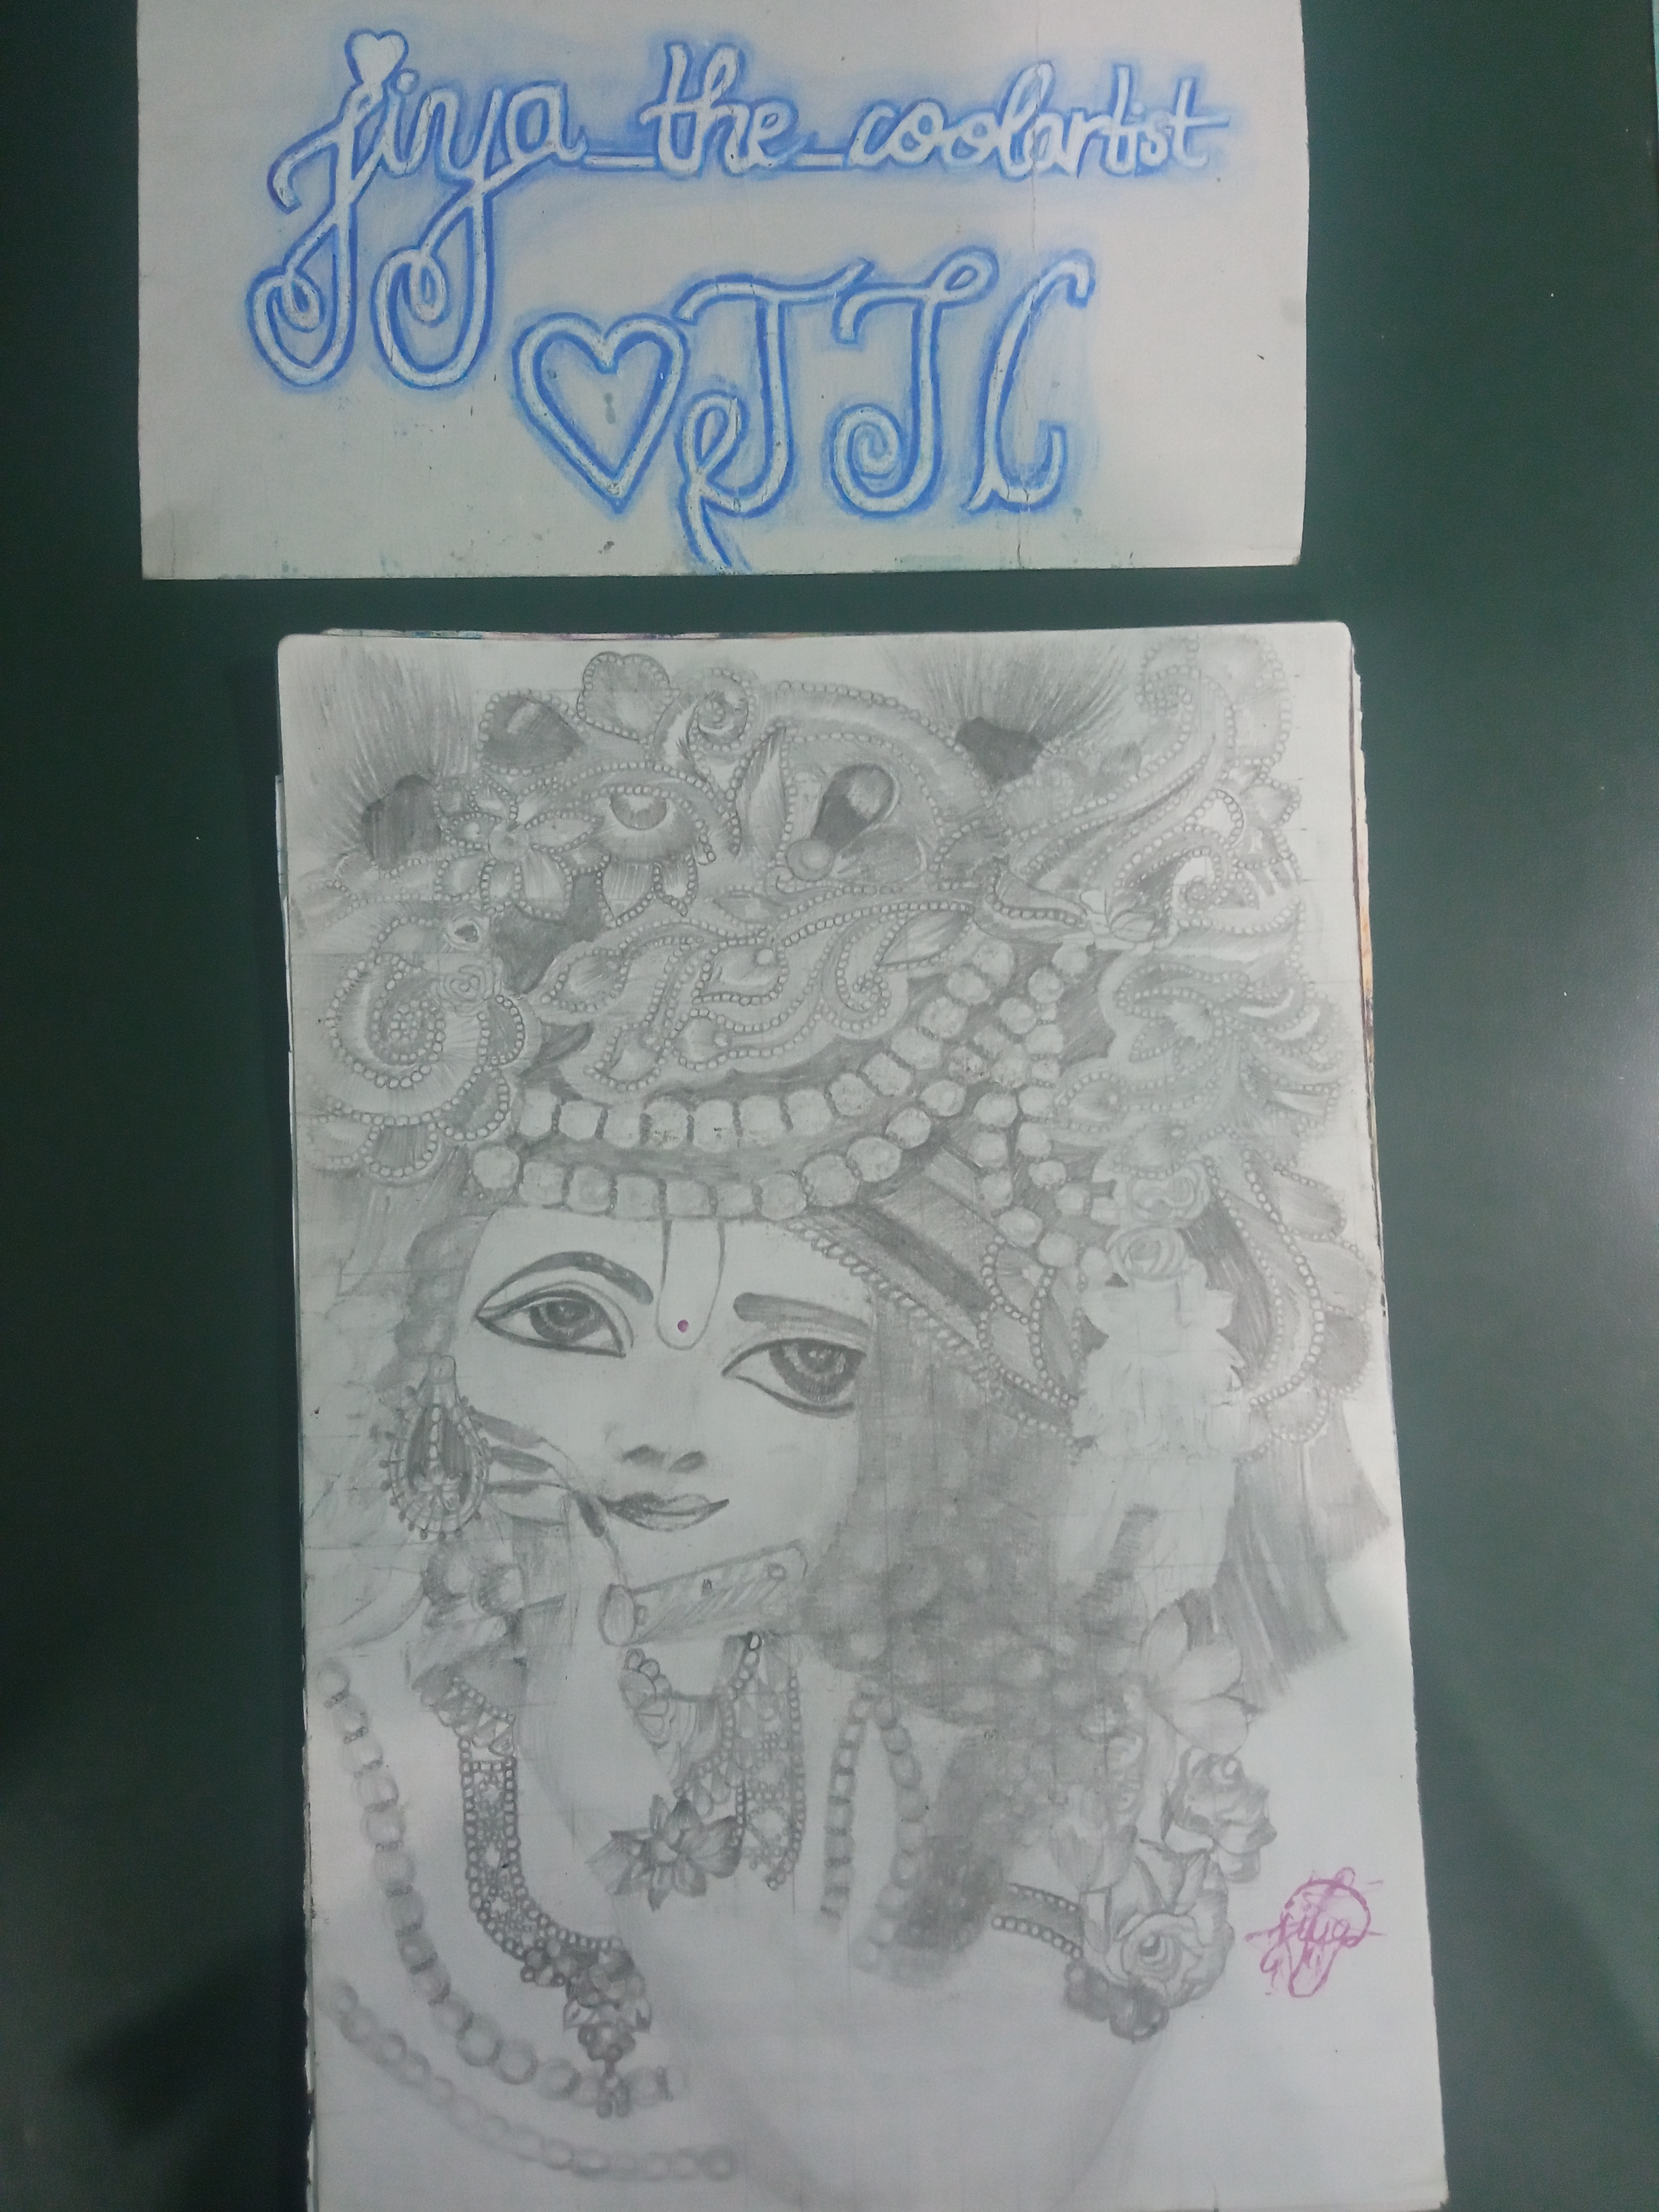 jiya_the_coolartist
JTC
jiya